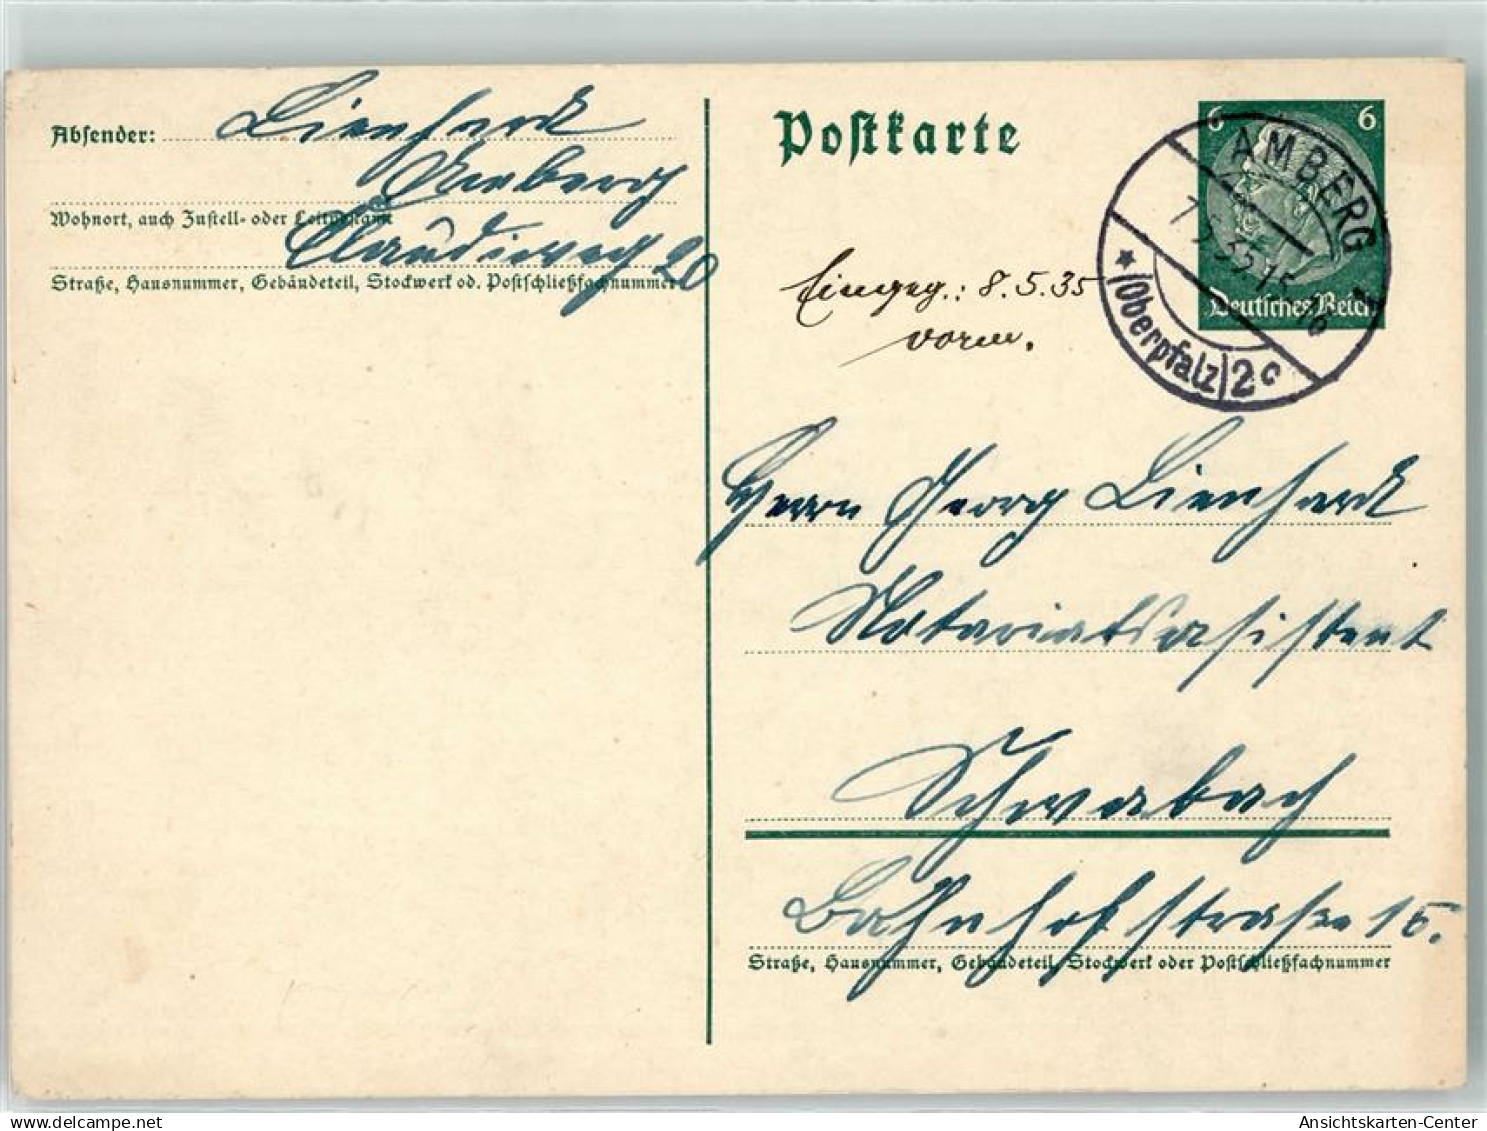 Absender: Lienhardt
Amberg
Wohnort, auch Zustell- oder Leitpostamt
Claudiweg 20
Straße, Hausnummer, Gebäudeteil, Stockwerk od. Postschließfachnummer
Postkarte
6 6
Deutsches Reich
AMBERG
7.5.35.15-16
* (Oberpfalz) 2c
Eingeg.: 8.5.35
vorm.
Herrn Georg Lienhardt
Notariatsassistent
Schwabach
Bahnhofstraße 15.
Straße, Hausnummer, Gebäudeteil, Stockwerk oder Postschließfachnummer
oldthing
Ansichtskarten-Center